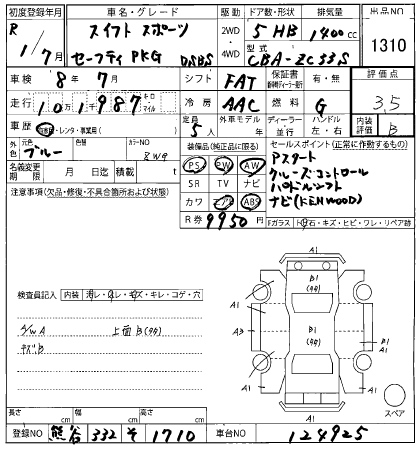 初度登録年月 車名・グレード 駆動 ドア数・形状 排気量 出品NO
R 1/7月 スイフト スポーツ 2WD 5 HB 1400cc 1310
セーフティPKG DSBS 4WD 型式 CBA-ZC33S
車検 8年7月 シフト FAT 保証書 有・無 評価点
走行 10万1987 キロ マイル 冷房 AAC 燃料 G 3.5
車歴 自家用・レンタ・事業用( ) 定員 5人 外車モデル年 ディーラー 並行 ハンドル 左・右 内装評価 B
外色 元色 ブルー 色替 カラーNO 8W9
装備品(純正品に限る) セールスポイント(正常に作動するもの)
名義変更期限 月 日迄 積載 t
PS PW AW
SR TV ナビ
カワ エアB ABS
R券 9950円
Pスタート
クルーズコントロール
パドルシフト
ナビ(KENWOOD)
注意事項(欠品・修復・不具合箇所および状態)
Fガラス 飛石・キズ・ヒビ・ワレ・リペア跡
検査員記入 内装 汚レ・スレ・キズ・キレ・コゲ・穴
A/W A 上面B(タタ)
キズB
A1
A1
B1
(タタ)
A1
A3
A1
B1
(タタ)
A1
A1
A1
スペア
長さ cm 幅 cm 高さ cm
登録NO 熊谷 332 そ 1710 車台NO 124925